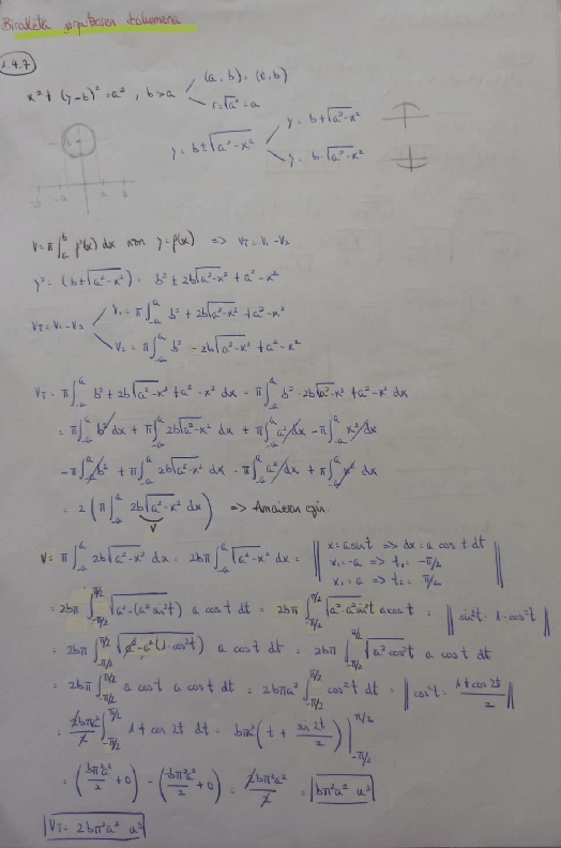 Biraketa gorputzaren bolumena
1.4.7
x² + (y-b)² = a² , b > a
(a, b) = (0, b)
r = √a² = a
y = b ± √a²-x²
y = b + √a²-x²
y = b - √a²-x²
-b -a a b
V = π ∫_a^b f²(x) dx non y = f(x) => V_T = V₁ - V₂
y² = (b ± √a²-x²)² = b² ± 2b√a²-x² + a² - x²
V_T = V₁ - V₂
V₁ = π ∫_-a^a b² + 2b√a²-x² + a² - x²
V₂ = π ∫_-a^a b² - 2b√a²-x² + a² - x²
V_T = π ∫_-a^a b² + 2b√a²-x² + a² - x² dx - π ∫_-a^a b² - 2b√a²-x² + a² - x² dx
= π ∫_-a^a b² dx + π ∫_-a^a 2b√a²-x² dx + π ∫_-a^a a² dx - π ∫_-a^a x² dx
- π ∫_-a^a b² + π ∫_-a^a 2b√a²-x² dx - π ∫_-a^a a² dx + π ∫_-a^a x² dx
= 2 ( π ∫_-a^a 2b√a²-x² dx ) => Amaieran egin.
V
V = π ∫_-a^a 2b√a²-x² dx = 2bπ ∫_-a^a √a²-x² dx = || x = a sin t => dx = a cos t dt
x₁ = -a => t₁ = -π/2
x₂ = a => t₂ = π/2 ||
= 2bπ ∫_-π/2^π/2 √a²-(a² sin² t) a cos t dt = 2bπ ∫_-π/2^π/2 √a²-a² sin² t a cos t = || sin² t = 1 - cos² t ||
= 2bπ ∫_-π/2^π/2 √a²-a²(1-cos² t) a cos t dt = 2bπ ∫_-π/2^π/2 √a² cos² t a cos t dt
= 2bπ ∫_-π/2^π/2 a cos t a cos t dt = 2bπa² ∫_-π/2^π/2 cos² t dt = || cos² t = (1 + cos 2t)/2 ||
= 2bπa²/2 ∫_-π/2^π/2 1 + cos 2t dt = bπa² ( t + sin 2t/2 ) ]_-π/2^π/2
= ( bπ²a²/2 + 0 ) - ( -bπ²a²/2 + 0 ) = 2bπ²a²/2 = bπ²a² u³
V_T = 2bπ²a² u³